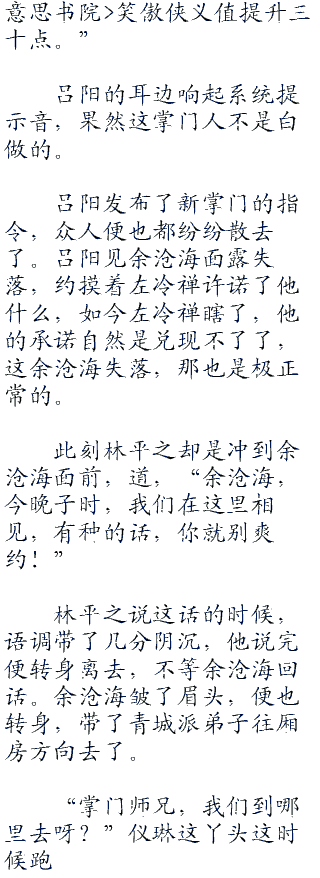 意思书院>笑傲侠义值提升三
十点。”
吕阳的耳边响起系统提
示音，果然这掌门人不是白
做的。
吕阳发布了新掌门的指
令，众人便也都纷纷散去
了。吕阳见余沧海面露失
落，约摸着左冷禅许诺了他
什么，如今左冷禅瞎了，他
的承诺自然是兑现不了了，
这余沧海失落，那也是极正
常的。
此刻林平之却是冲到余
沧海面前，道，“余沧海，
今晚子时，我们在这里相
见，有种的话，你就别爽
约！”
林平之说这话的时候，
语调带了几分阴沉，他说完
便转身离去，不等余沧海回
话。余沧海皱了眉头，便也
转身，带了青城派弟子往厢
房方向去了。
“掌门师兄，我们到哪
里去呀？”仪琳这丫头这时
候跑